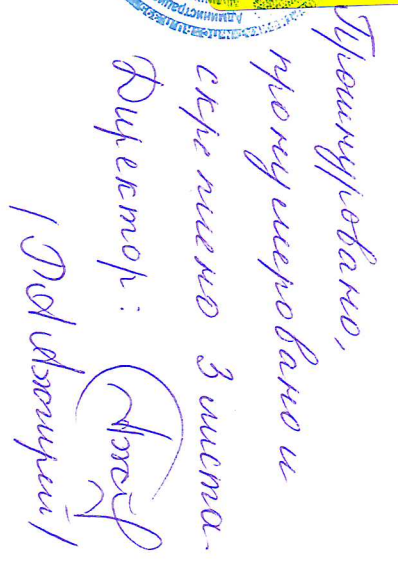 Прошнуровано,
пронумеровано и
скреплено 3 листа.
Директор: